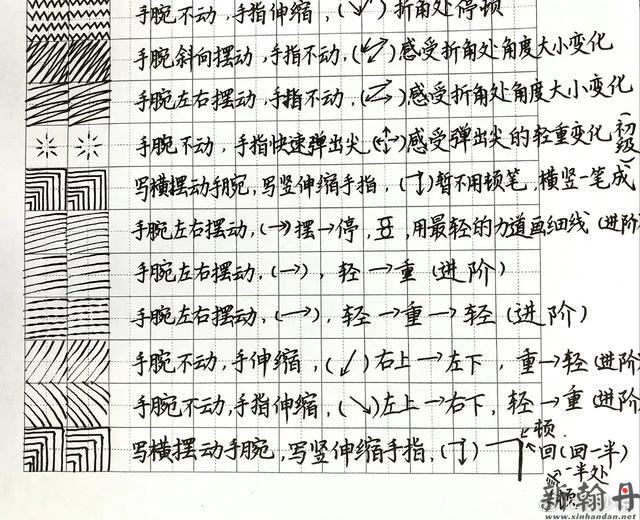 手腕不动,手指伸缩,(↘↙)折角处停顿
手腕斜向摆动,手指不动,(↗↙)感受折角处角度大小变化
手腕左右摆动,手指不动,(⇄)感受折角处角度大小变化
手腕不动,手指快速弹出尖,(←↑→)感受弹出尖的轻重变化(初级)
写横摆动手腕,写竖伸缩手指,(→↓)暂不用顿笔,横竖一笔成
手腕左右摆动,(→)摆→停,用最轻的力道画细线(进阶
手腕左右摆动,(→),轻→重(进阶)
手腕左右摆动,(→),轻→重→轻(进阶)
手腕不动,手伸缩,(↙)右上→左下,重→轻(进阶
手腕不动,手指伸缩,(↘)左上→右下,轻→重(进阶
写横摆动手腕,写竖伸缩手指,(→↓)
↙顿
↖回(回一半)
一半处
顿
新翰丹
www.xinhandan.net